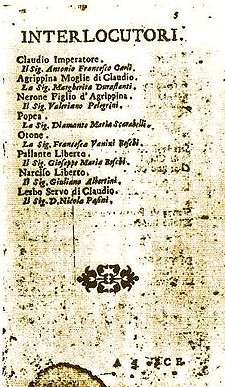 5
INTERLOCUTORI.
Claudio Imperatore.
Il Sig. Antonio Francesco Carli.
Agrippina Moglie di Claudio.
La Sig. Margherita Durastanti.
Nerone Figlio d'Agrippina.
Il Sig. Valeriano Pelegrini.
Popea.
La Sig. Diamante Maria Scarabelli.
Otone.
La Sig. Francesca Vanini Boschi.
Pallante Liberto.
Il Sig. Gioseppe Maria Boschi.
Narciso Liberto.
Il Sig. Giuliano Albertini.
Lesbo Servo di Claudio.
Il Sig. D. Nicola Pasini.